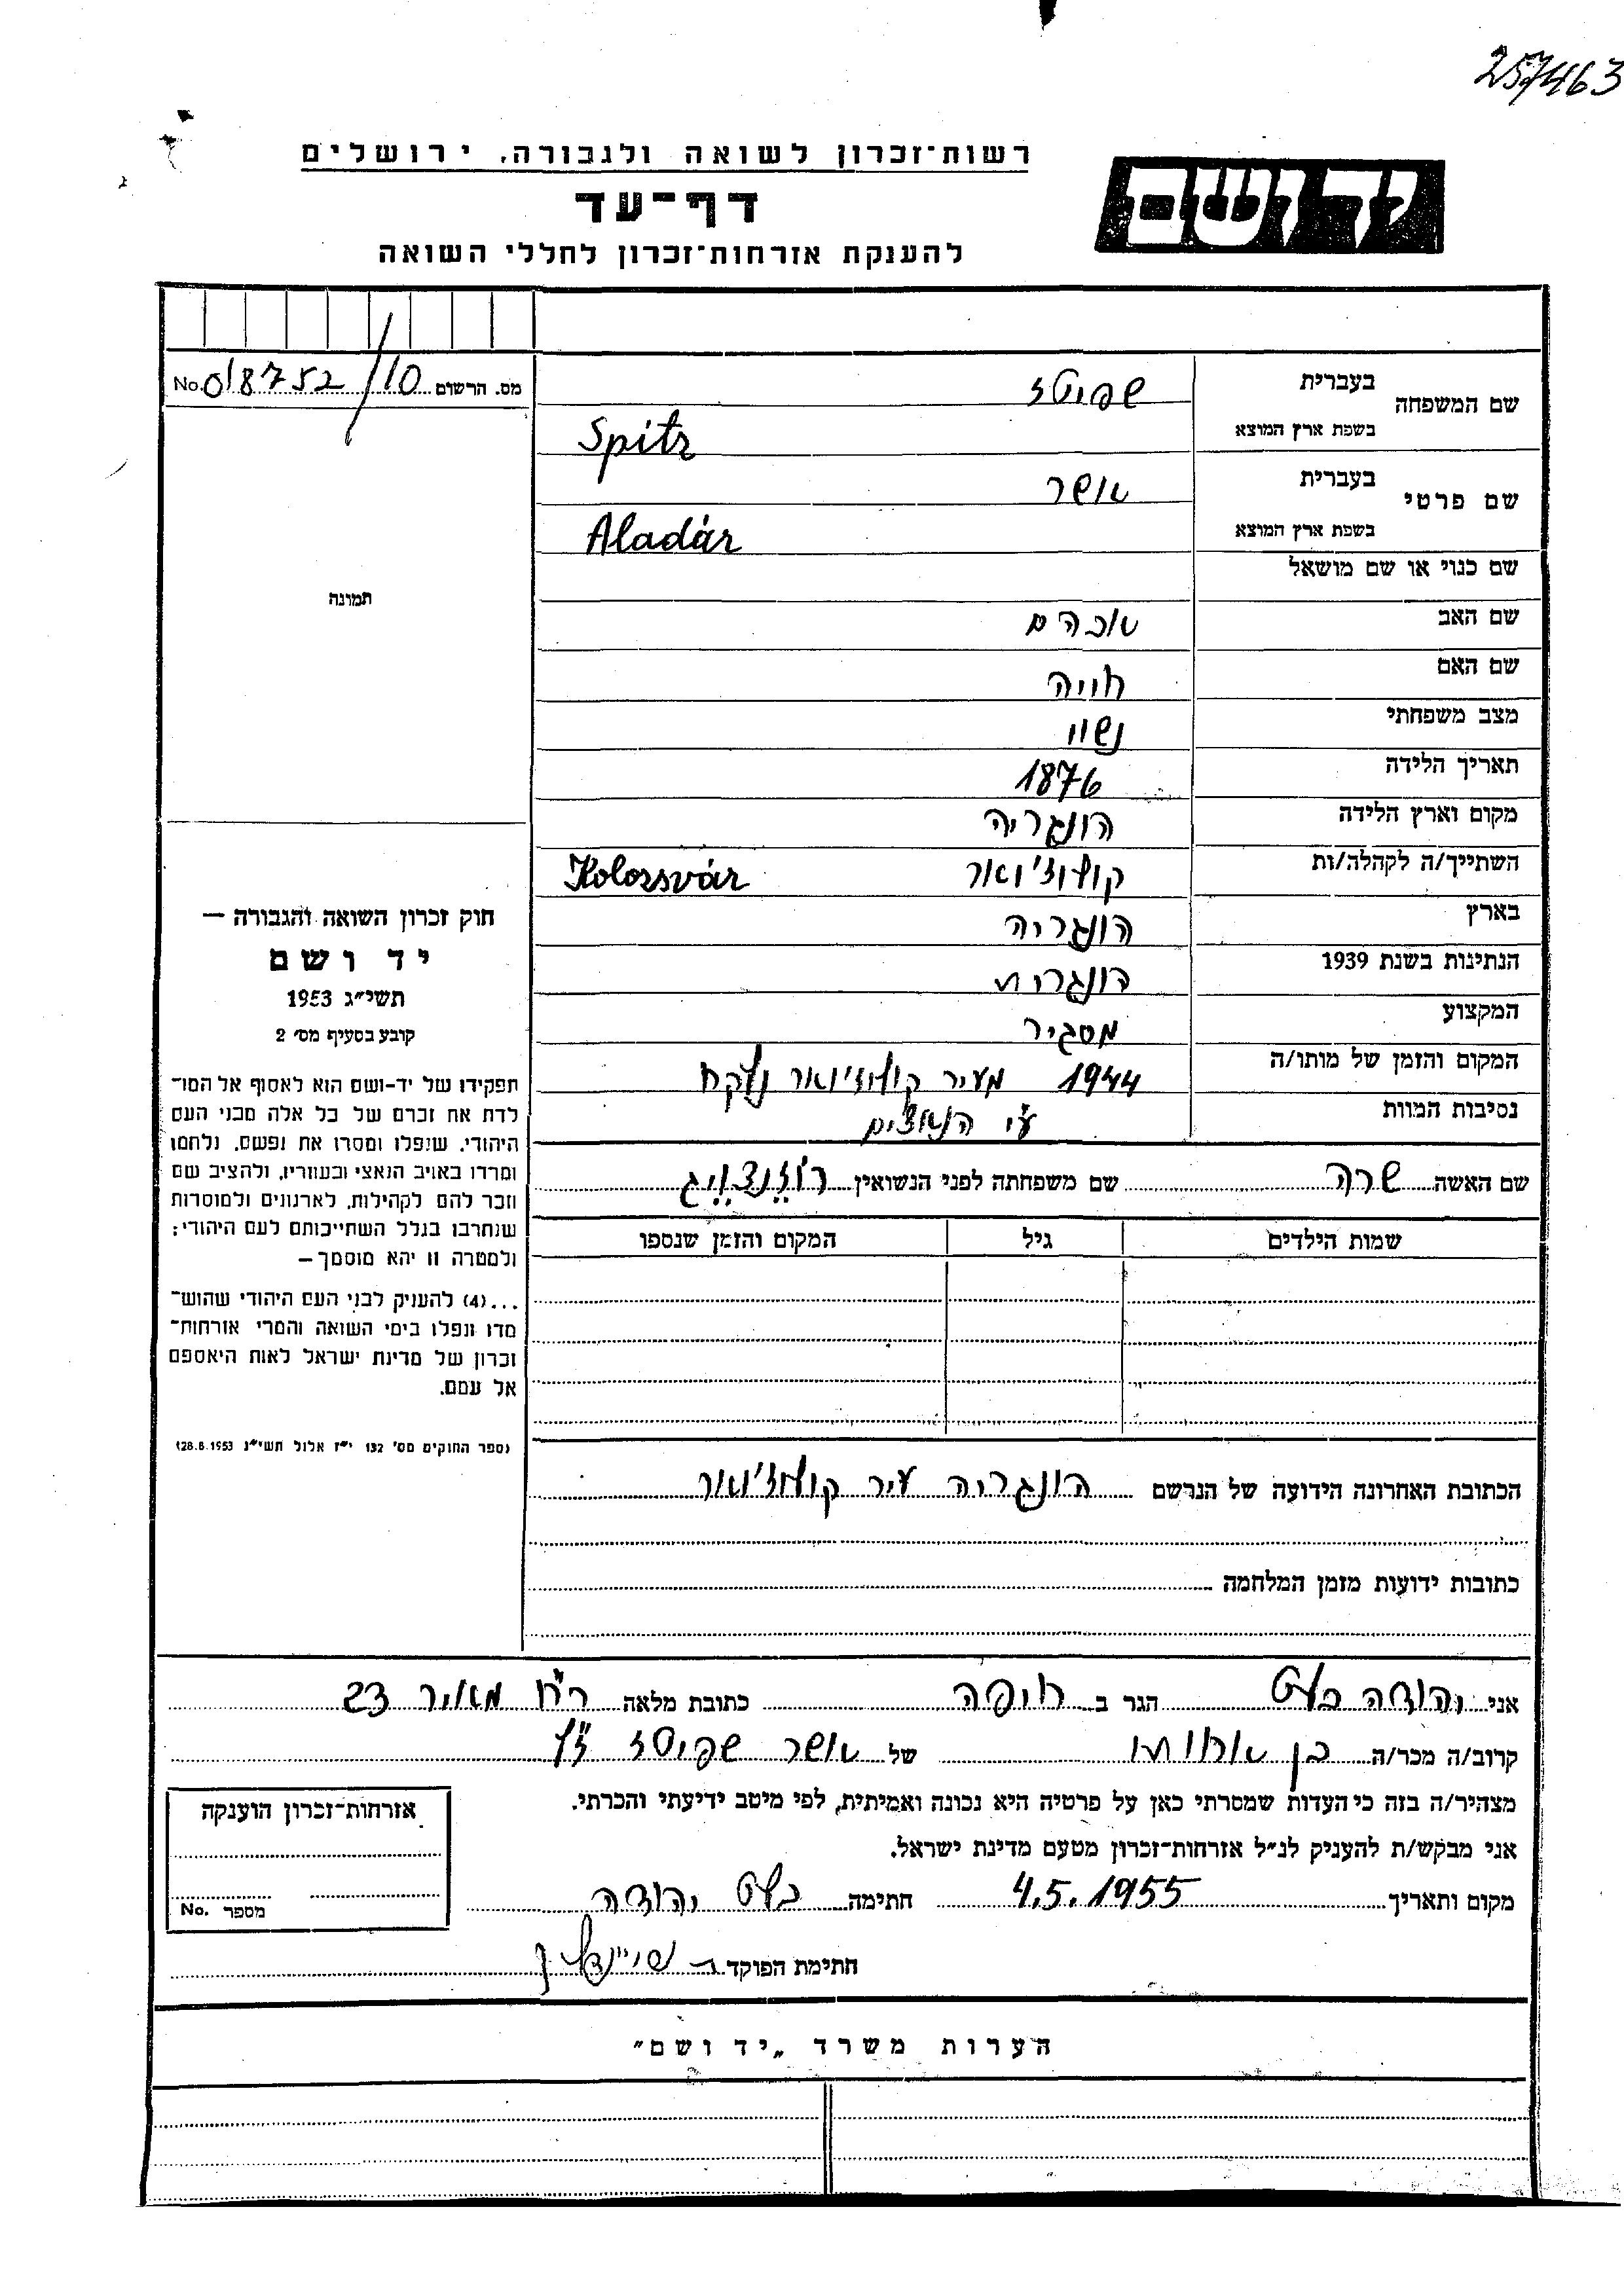 257463
רשות־זכרון לשואה ולגבורה, ירושלים
יד ושם
דף־עד
להענקת אזרחות־זכרון לחללי השואה
מס. הרשום 018752/10 No.
שם המשפחה בעברית שפיטז
בשפת ארץ המוצא Spitz
שם פרטי בעברית אשר
בשפת ארץ המוצא Aladár
שם כנוי או שם מושאל
שם האב אברהם
שם האם חייה
מצב משפחתי נשוי
תאריך הלידה 1876
מקום וארץ הלידה הונגריה
השתייך/ה לקהלה/ות קולוז'וואר Kolozsvár
בארץ הונגריה
הנתינות בשנת 1939 הונגרית
המקצוע מסגיר
המקום והזמן של מותו/ה 1944 מעיר קולוז'וואר נלקח
נסיבות המוות ע"י הנאצים
שם האשה שרה שם משפחתה לפני הנשואין רוזנצוויג
שמות הילדים גיל המקום והזמן שנספו
הכתובת האחרונה הידועה של הנרשם הונגריה עיר קולוז'וואר
כתובות ידועות מזמן המלחמה
תמונה
חוק זכרון השואה והגבורה —
יד ושם
תשי"ג 1953
קובע בסעיף מס׳ 2
תפקידו של יד-ושם הוא לאסוף אל המו־
לדת את זכרם של כל אלה מבני העם
היהודי, שנפלו ומסרו את נפשם, נלחמו
ומרדו באויב הנאצי ובעוזריו, ולהציב שם
וזכר להם לקהילות, לארגונים ולמוסדות
שנחרבו בגלל השתייכותם לעם היהודי;
ולמטרה זו יהא מוסמך—
...(4) להעניק לבני העם היהודי שהוש־
מדו ונפלו בימי השואה והמרי אזרחות־
זכרון של מדינת ישראל לאות היאספם
אל עמם.
(ספר החוקים מס׳ 132 י"ז אלול תשי"ג 28.8.1953)
אני יהודה בלט הגר ב חיפה כתובת מלאה רח' מאיר 23
קרוב/ה מכר/ה בן אחותו של אשר שפיטז ז"ל
מצהיר/ה בזה כי העדות שמסרתי כאן על פרטיה היא נכונה ואמיתית, לפי מיטב ידיעתי והכרתי.
אני מבקש/ת להעניק לנ"ל אזרחות־זכרון מטעם מדינת ישראל.
מקום ותאריך 4.5.1955 חתימה בלט יהודה
חתימת הפוקד
אזרחות־זכרון הוענקה
מספר No.
הערות משרד „יד ושם"